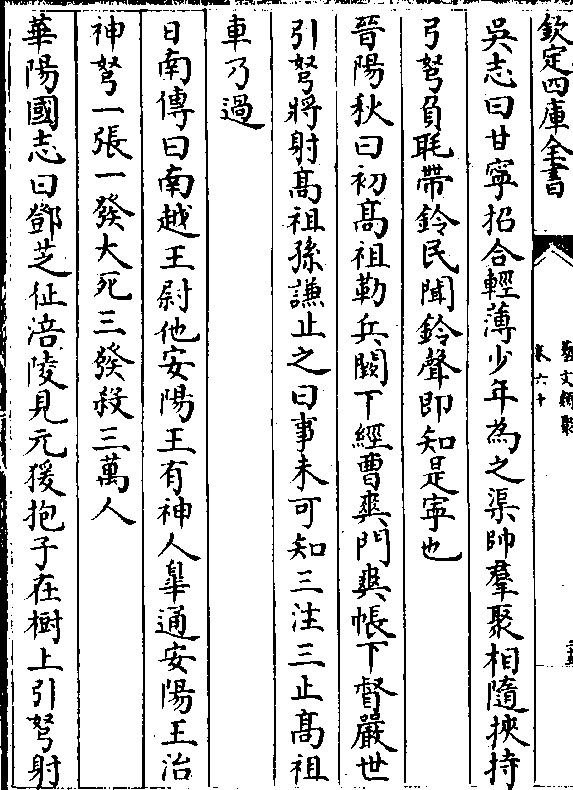 欽定四庫全書
藝文類聚
卷六十
吳志曰甘寧招合輕薄少年為之渠帥羣聚相隨挾持
弓弩負毦帶鈴民聞鈴聲即知是寧也
晉陽秋曰初髙祖勒兵闕下經曹爽門爽帳下督嚴世
引弩將射髙祖孫謙止之曰事未可知三注三止髙祖
車乃過
日南傳曰南越王尉他安陽王有神人睾通安陽王治
神弩一張一發大死三發殺三萬人
華陽國志曰鄧芝征涪陵見元猨抱子在樹上引弩射